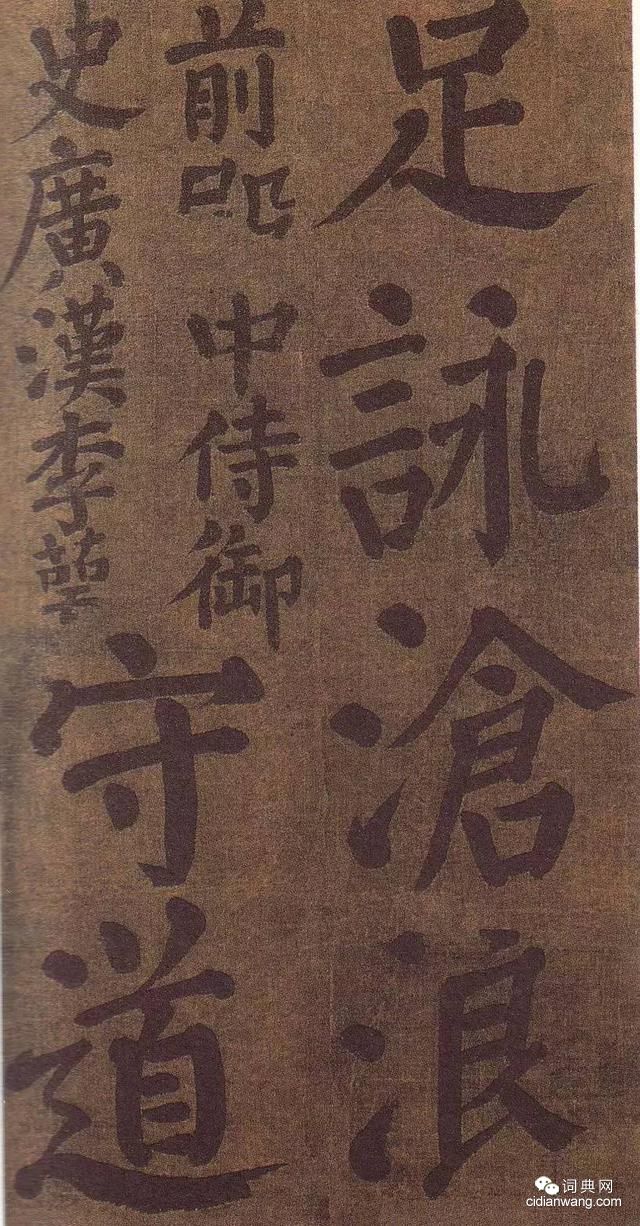 足詠滄浪
前中侍御
史廣漢李萼
守道
词典网
cidianwang.com